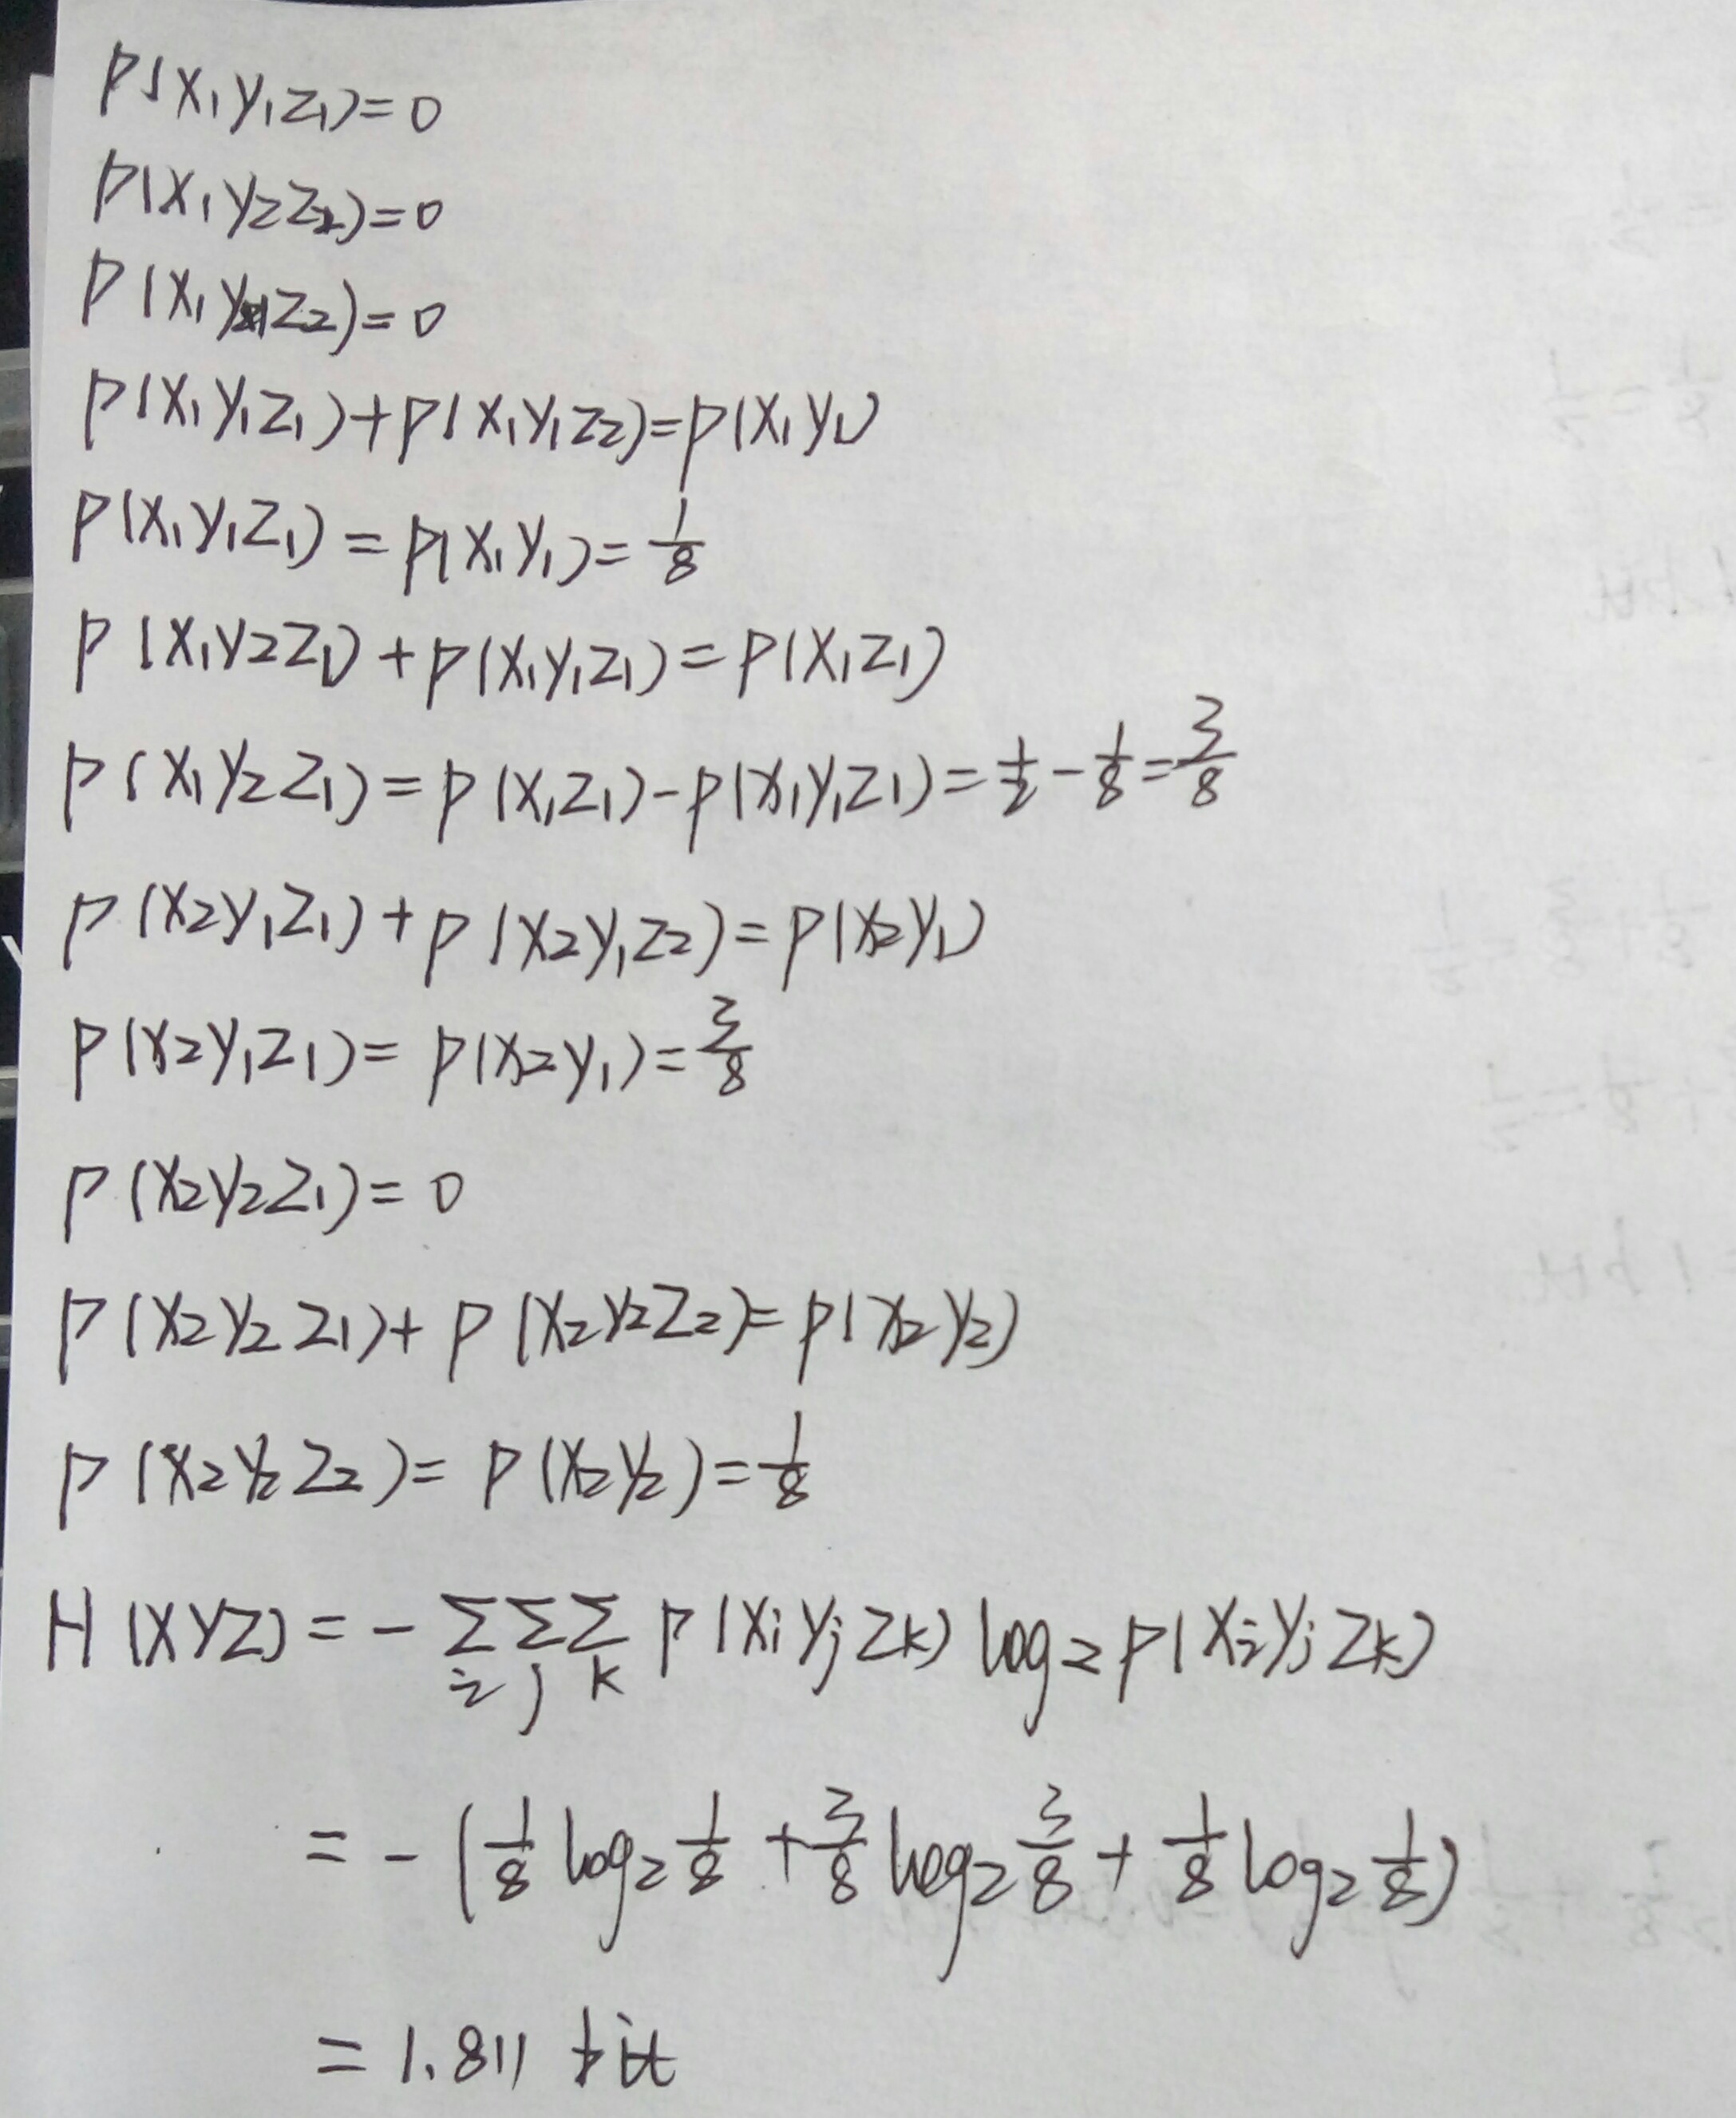 P(x₁y₁z₁)=0
P(x₁y₂z₂)=0
P(x₁y₁z₂)=0
P(x₁y₁z₁)+P(x₁y₁z₂)=P(x₁y₁)
P(x₁y₁z₁)=P(x₁y₁)=1/8
P(x₁y₂z₁)+P(x₁y₁z₁)=P(x₁z₁)
P(x₁y₂z₁)=P(x₁z₁)-P(x₁y₁z₁)=1/2-1/8=3/8
P(x₂y₁z₁)+P(x₂y₁z₂)=P(x₂y₁)
P(x₂y₁z₁)=P(x₂y₁)=3/8
P(x₂y₂z₁)=0
P(x₂y₂z₁)+P(x₂y₂z₂)=P(x₂y₂)
P(x₂y₂z₂)=P(x₂y₂)=1/8
H(XYZ)=-∑ᵢ∑ⱼ∑ₖ P(xᵢyⱼzₖ) log₂P(xᵢyⱼzₖ)
=-(1/8 log₂ 1/8 + 3/8 log₂ 3/8 + 1/8 log₂ 1/8)
=1.811 bit